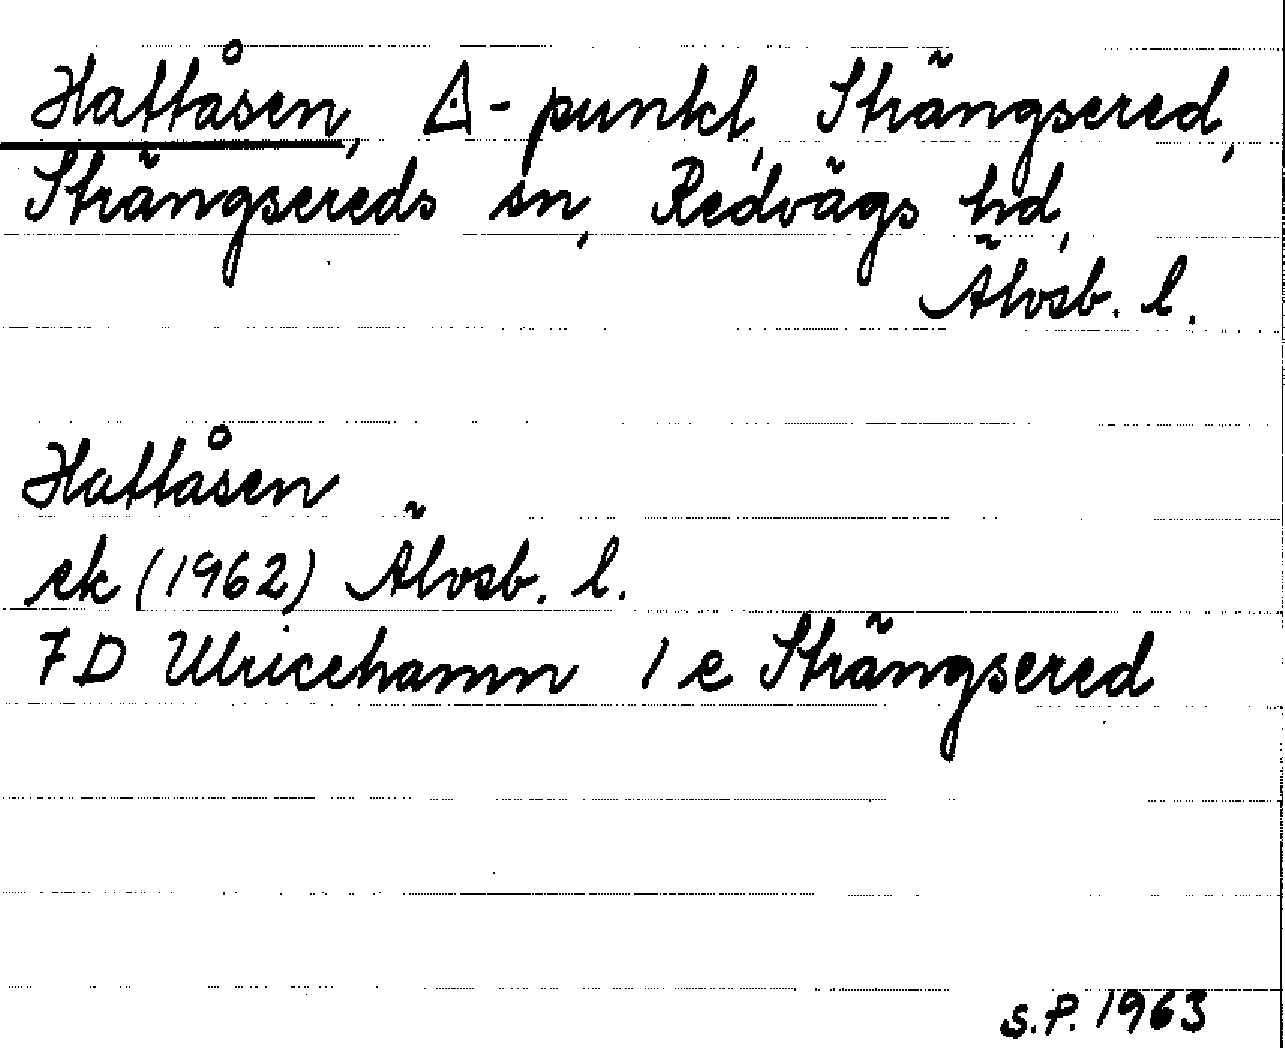 Hattåsen, △-punkt, Strängsered,
Strängsereds sn, Redvägs hd,
Älvsb. l.
Hattåsen
ek (1962) Älvsb. l.
7D Ulricehamn 1 e Strängsered
S.P. 1963